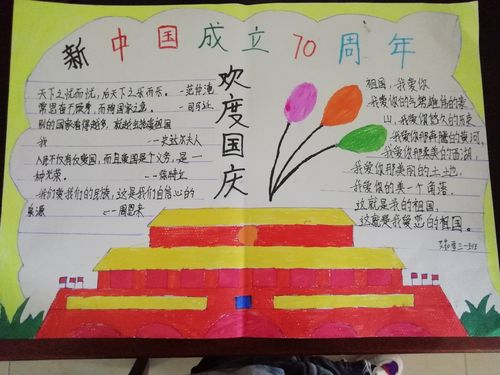 新中国成立70周年
欢度国庆
天下之忧而忧，后天下之乐而乐。 --范仲淹
常思奋不顾身，而殉国家之急。 --司马迁
别的国家看得越多，就越会热爱祖国
我 --史达尔夫人
人民不仅有权爱国，而且爱国是个义务，是一
种光荣。 --徐特立
我们爱我们的民族，这是我们自信心的
泉源 --周恩来
祖国，我爱你
我爱你的气势雄伟的泰
山，我爱你悠久的历史
我爱你那奔腾的黄河，
我爱你那柔美的西湖，
我爱你那美丽的土地，
我爱你的每一个角落，
这就是我的祖国，
这就是我爱恋的祖国。